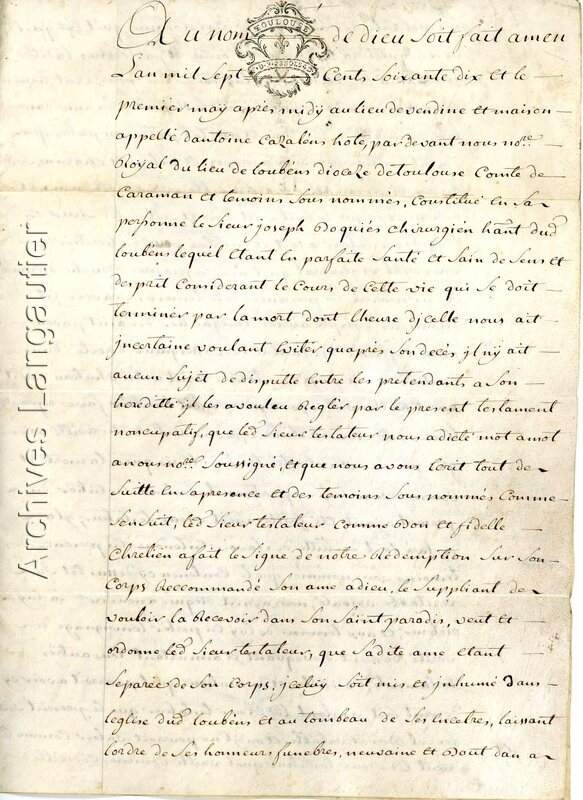 Au nom de dieu soit fait amen
TOULOUSE
Lan mil sept Cents soixante dix et le
premier may après midy au lieu de vendine et maison
appellé dantoine Cazaléns hote, par devant nous nore
Royal du lieu de loubéns dioceze de toulouse Comté de
Caraman et temoins sous nommés, Constitué en sa
personne le sieur joseph Boquiés chirurgien hant dud
loubens lequel etant en parfaite santé et sain de sens et
desprit Considerant le Cours de Cette vie qui se doit
terminér par la mort dont lheure djcelle nous ait
jncertaine voulant Eviter quaprès son decés, jl ny ait
aucun sujet de disputte entre les pretendants, a son
heredité jl les a vouleu Reglér par le present testament
noncupatif, que led sieur testateur nous a dicté mot a mot
a nous nore soussigné, et que nous avons Ecrit tout de
suitte en sa presence et des temoins sous nommés Comme
sensuit, led sieur testateur comme Bon et fidelle
Chretien a fait le signe de notre Rédemption sur son
Corps Reccommandé son ame a dieu, le suppliant de
vouloir la Recevoir dans son saint paradis, veut et
ordonne led sieur testateur, que sadite ame etant
separée de son Corps, jceluy soit mis et jnhumé dans
leglise dud loubéns et au tombeau de ses Encetres, laissant
lordre de ses honneurs funebres, neuvaine et Bout dan a
Archives Langautier